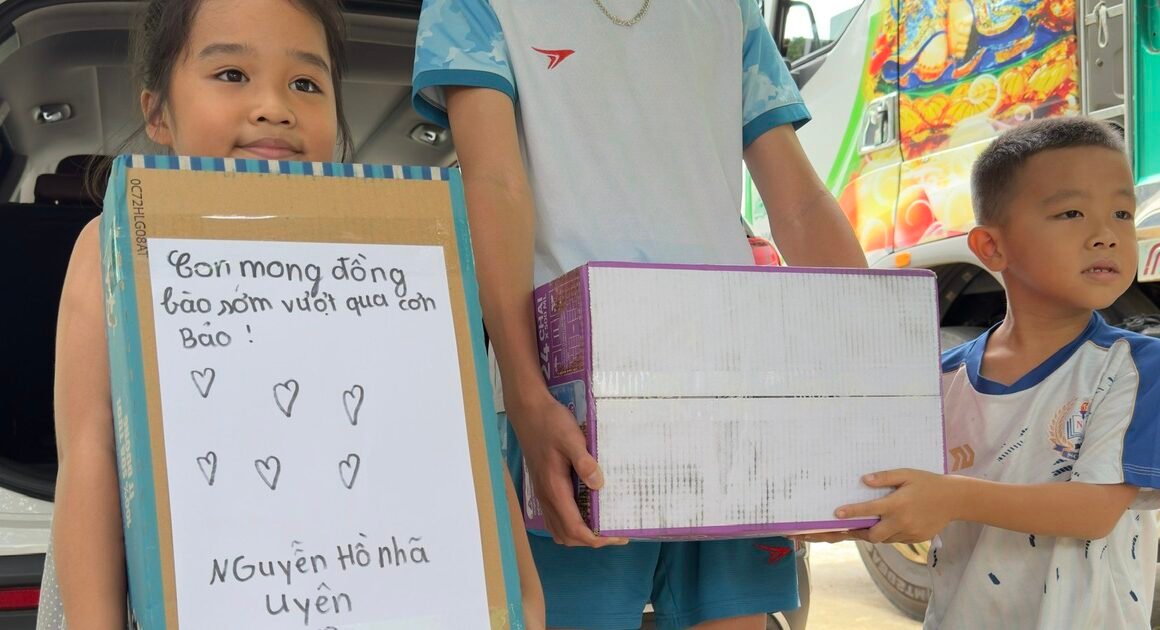 0C72HLG08A1
Con mong đồng
bào sớm vượt qua cơn
Bão !
Nguyễn Hồ nhã
Uyên
24 CHAI